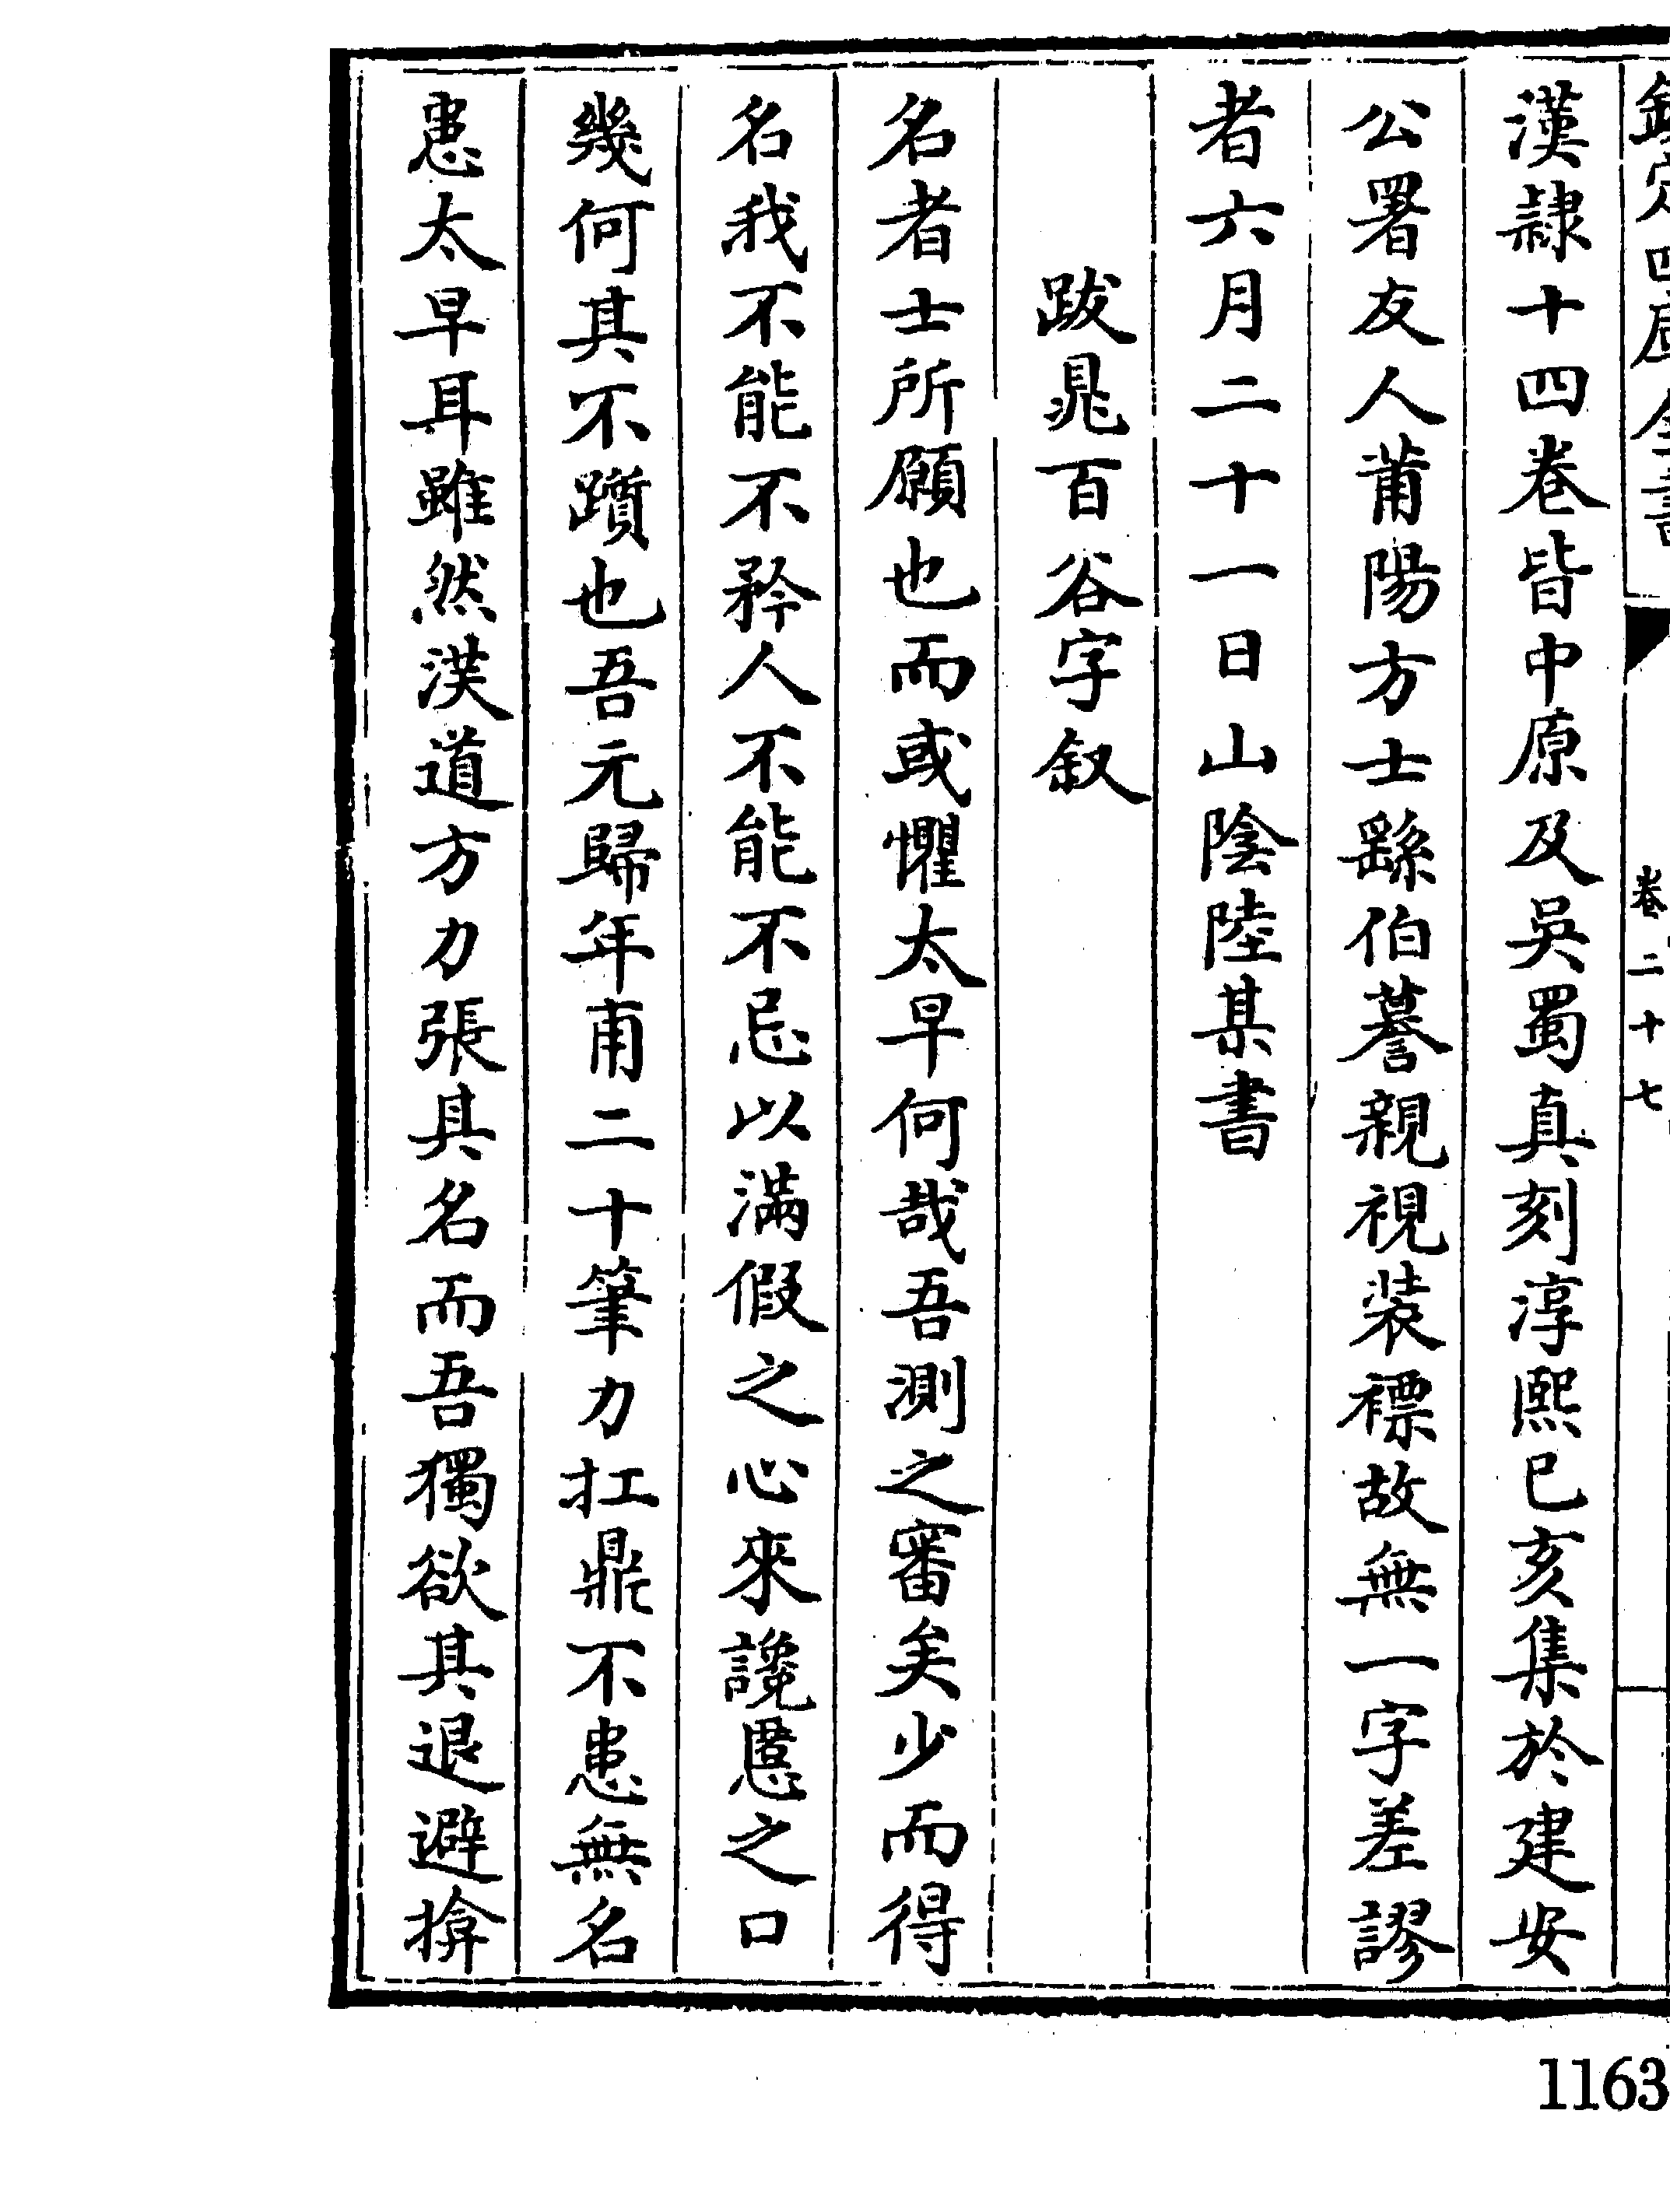 欽定四庫全書
卷二十七
漢隷十四卷皆中原及吳蜀真刻淳熙已亥集於建安
公署友人莆陽方士繇伯謩親視装褾故無一字差謬
者六月二十一日山陰陸某書
跋晁百谷字叙
名者士所願也而或懼太早何哉吾測之審矣少而得
名我不能不矜人不能不忌以滿假之心來讒慝之口
幾何其不躓也吾元歸年甫二十筆力扛鼎不患無名
患太早耳雖然漢道方力張其名而吾獨欲其退避揜
1163